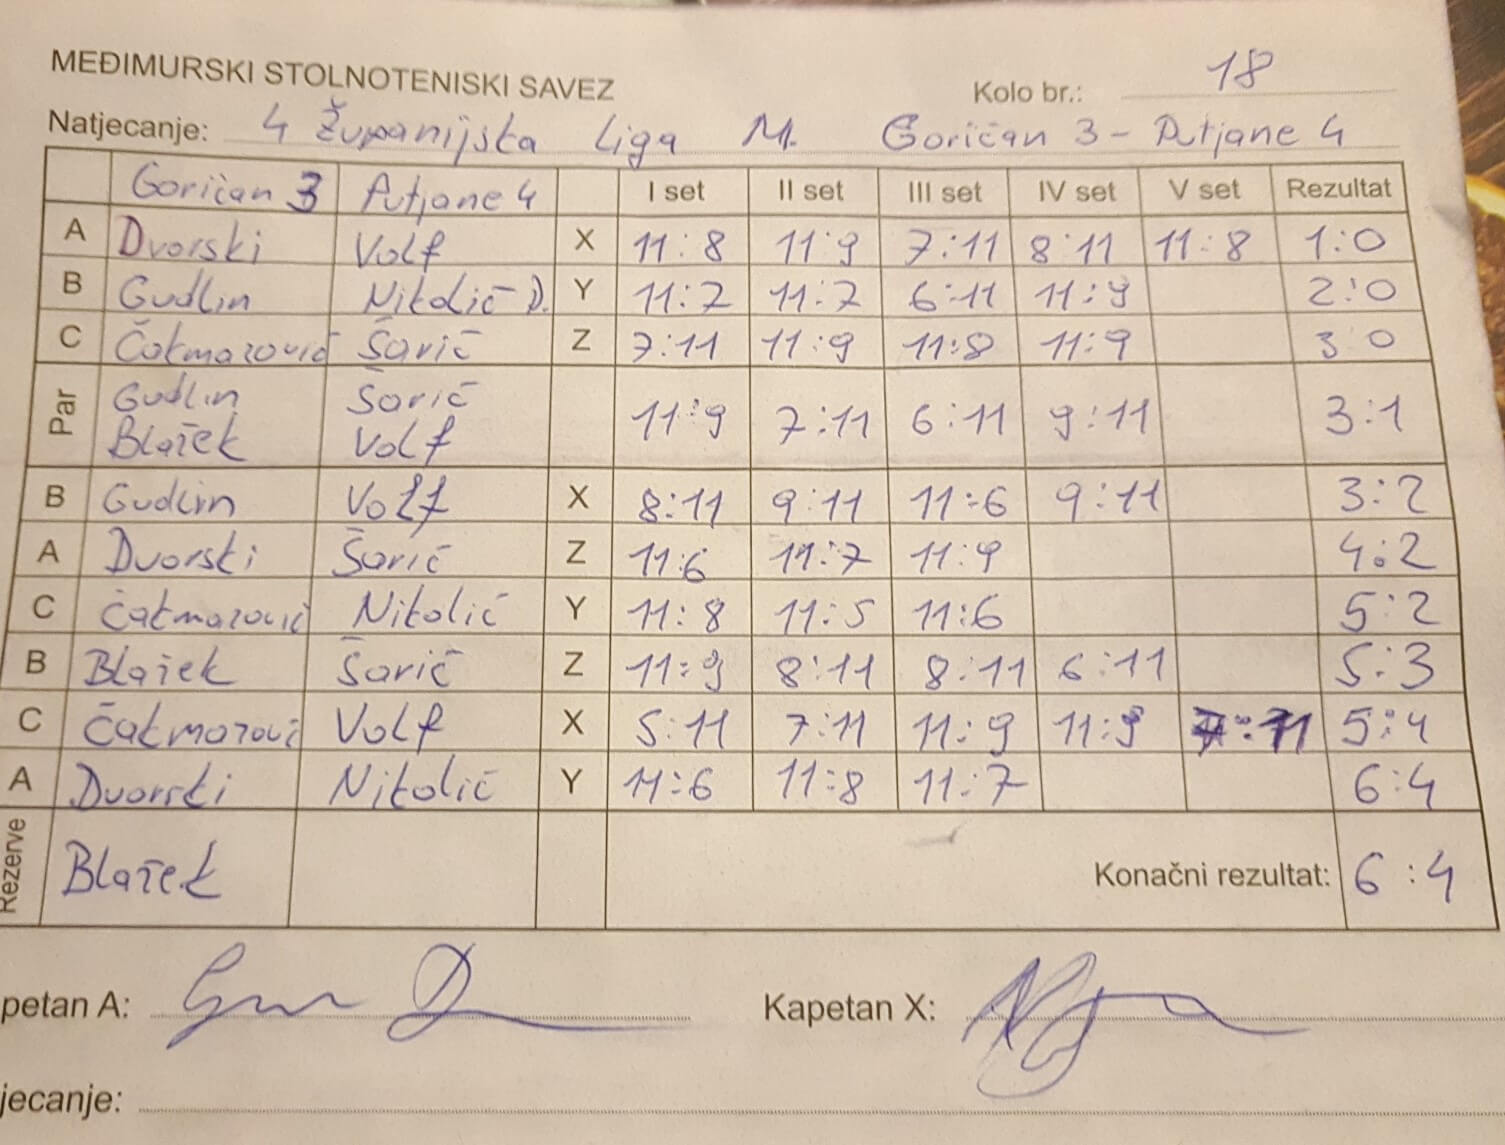 MEĐIMURSKI STOLNOTENISKI SAVEZ
Kolo br.: 18
Natjecanje: 4 Županijska Liga M. Goričan 3 - Putjane 4
Goričan 3 Putjane 4 I set II set III set IV set V set Rezultat
A Dvorski Volf X 11:8 11:9 7:11 8:11 11:8 1:0
B Gudlin Nikolić D. Y 11:7 11:7 6:11 11:9 2:0
C Čakmazović Šarić Z 7:11 11:9 11:8 11:9 3 0
Par
Gudlin Šarić
Blažek Volf
11:9 7:11 6:11 9:11 3:1
B Gudlin Volf X 8:11 9:11 11:6 9:11 3:2
A Dvorski Šarić Z 11:6 11:7 11:9 4:2
C Čakmazović Nikolić Y 11:8 11:5 11:6 5:2
B Blažek Šarić Z 11:9 8:11 8:11 6:11 5:3
C Čakmazović Volf X 5:11 7:11 11:9 11:9 :11 5:4
A Dvorski Nikolić Y 11:6 11:8 11:7 6:4
Rezerve Blažek Konačni rezultat: 6:4
petan A: Kapetan X:
jecanje: